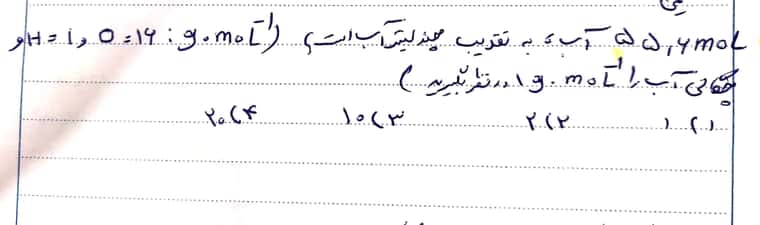 ۵۵,۶ mol آب، به تقریب چند لیتر آب است؟ (H=1, O=16 : g.mol⁻¹ و
چگالی آب را 1 g.mol⁻¹ در نظر بگیرید)
۱) ۱ ۲) ۲ ۳) ۱۰ ۴) ۲۰